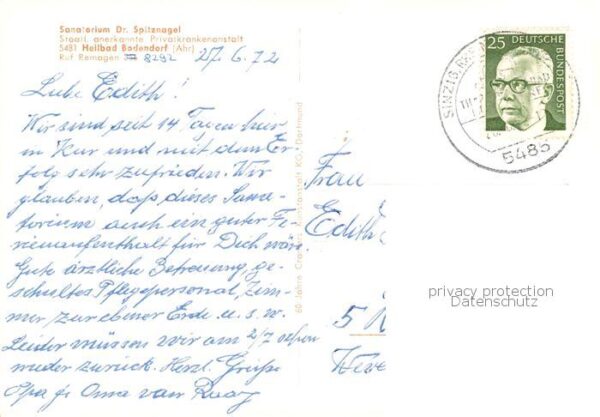 Sanatorium Dr. Spitznagel
Staatl. anerkannte Privatkrankenanstalt
5481 Heilbad Bodendorf (Ahr)
Ruf Remagen 8292
27.6.72
Liebe Edith!
Wir sind seit 14 Tagen hier
in Kur und mit dem Er-
folg sehr zufrieden. Wir
glauben, daß dieses Sana-
torium auch ein guter Fe-
rienaufenthalt für Dich wäre.
Gute ärztliche Betreuung, ge-
schultes Pflegepersonal, Zim-
mer zur ebener Erde u.s.w.
Leider müssen wir am 2/7 schon
wieder zurück. Herzl. Grüße
Opa & Oma van
60 Jahre Kunstanstalt KG, Dortmund
25 DEUTSCHE BUNDESPOST
SINZIG
5485
Frau
Edith
5
privacy protection
Datenschutz